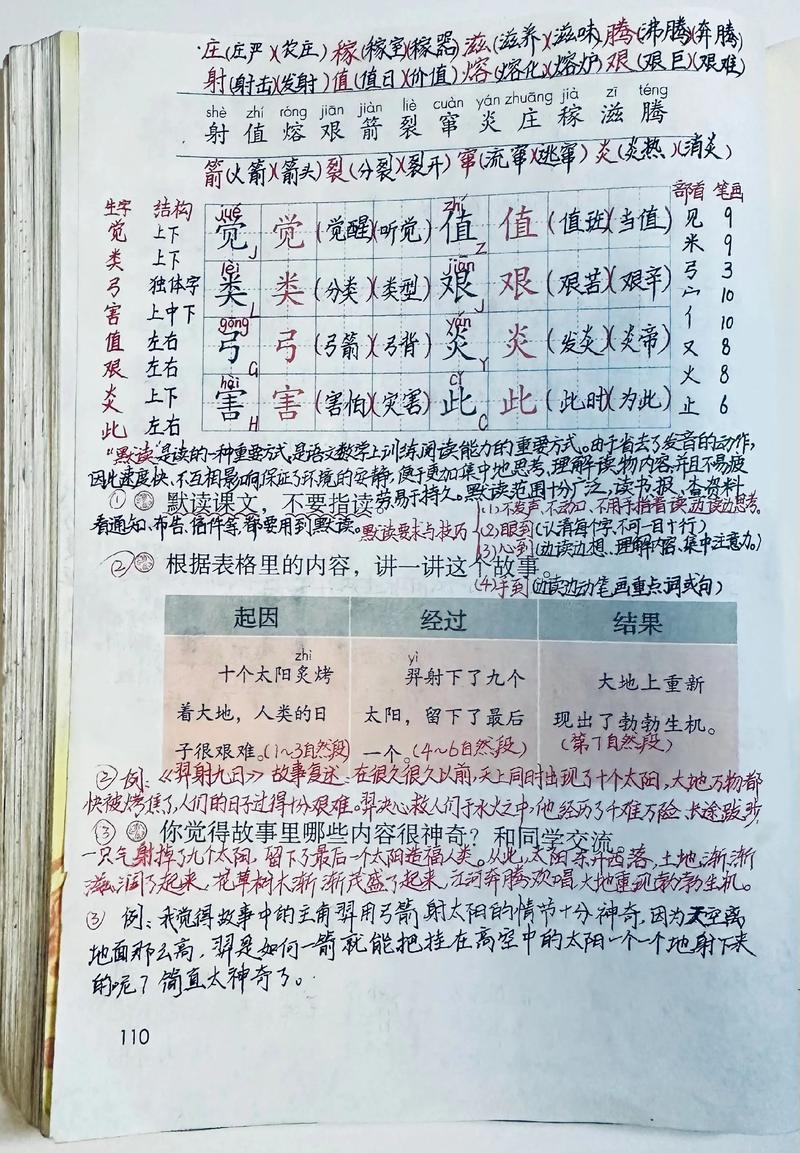 庄(庄严)(农庄) 稼(稼穑)(稼器) 滋(滋养)(滋味) 腾(沸腾)(奔腾)
射(射击)(发射) 值(值日)(价值) 熔(熔化)(熔炉) 艰(艰巨)(艰难)
shè zhí róng jiān jiàn liè cuàn yán zhuāng jià zī téng
射 值 熔 艰 箭 裂 窜 炎 庄 稼 滋 腾
箭(火箭)(箭头) 裂(分裂)(裂开) 窜(流窜)(逃窜) 炎(炎热)(消炎)
生字 结构 部首 笔画
jué zhí
觉 上下 觉 J 觉 (觉醒)(听觉) 值 Z 值 (值班)(当值) 见 9
lèi jiān
类 上下 类 L 类 (分类)(类型) 艰 J 艰 (艰苦)(艰辛) 米 9
弓 独体字 弓 3
gōng yán
害 上中下 弓 G 弓 (弓箭)(弓背) 炎 Y 炎 (发炎)(炎帝) 宀 10
值 左右 亻 10
艰 左右 又 8
hài cǐ
炎 上下 害 H 害 (害怕)(灾害) 此 C 此 (此时)(为此) 火 8
此 左右 止 6
"默读"是读的一种重要方式,是语文教学上训练阅读能力的重要方式。由于省去了发音的动作,
因此速度快、不互相影响,保证了环境的安静,便于更加集中地思考、理解读物内容,并且不易疲
劳,易于持久。默读范围十分广泛,读书报、查资料
① 默读课文,不要指读。
看通知、布告、信件等,都要用到默读。
默读要求与技巧
(1)不发声,不动口、不用手指着读,边读边思考。
(2)眼到(认清每个字,不可一目十行)
(3)心到(边读边想、理解内容、集中注意力。)
② 根据表格里的内容,讲一讲这个故事。
(4)手到(边读边动笔,画重点词或句)
起因 经过 结果
zhì yì
十个太阳炙烤 羿射下了九个 大地上重新
着大地,人类的日 太阳,留下了最后 现出了勃勃生机。
子很艰难。(1~3自然段) 一个。(4~6自然段) (第7自然段)
② 例:《羿射九日》故事复述:在很久很久以前,天上同时出现了十个太阳,大地万物都
快被烤焦了,人们的日子过得十分艰难。羿决心救人们于水火之中,他经历了千难万险、长途跋涉,
③ 你觉得故事里哪些内容很神奇?和同学交流。
一口气射掉了九个太阳,留下了最后一个太阳造福人类。从此,太阳东升西落,土地渐渐
滋润了起来,花草树木渐渐茂盛了起来,江河奔腾欢唱,大地重现勃勃生机。
③ 例:我觉得故事中的主角羿用弓箭射太阳的情节十分神奇,因为天空离
地面那么高,羿是如何一箭就能把挂在高空中的太阳一个一个地射下来
的呢?简直太神奇了。
110